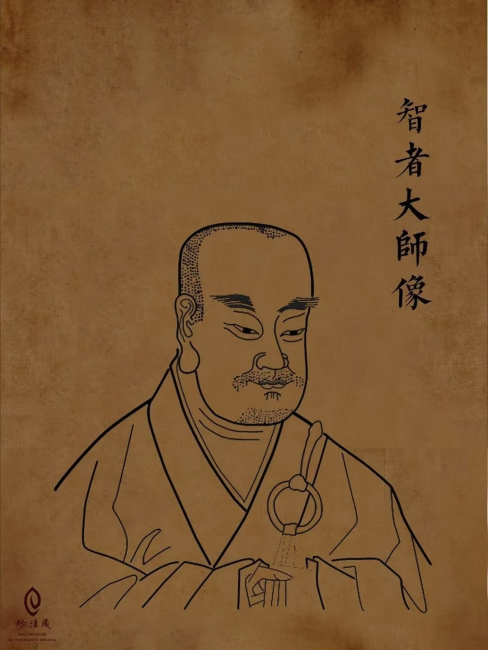 智者大師像